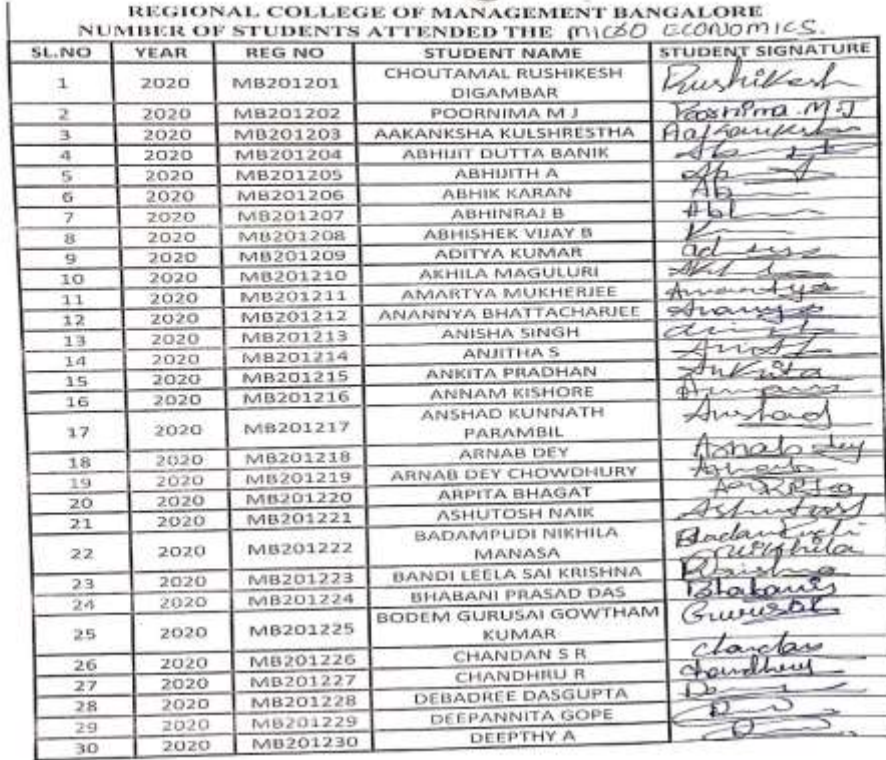 REGIONAL COLLEGE OF MANAGEMENT BANGALORE
NUMBER OF STUDENTS ATTENDED THE MICRO ECONOMICS.
SL.NO YEAR REG NO STUDENT NAME STUDENT SIGNATURE
1 2020 MB201201 CHOUTAMAL RUSHIKESH DIGAMBAR Rushikesh
2 2020 MB201202 POORNIMA M J Poornima.M.J
3 2020 MB201203 AAKANKSHA KULSHRESTHA Aakanksha
4 2020 MB201204 ABHIJIT DUTTA BANIK
5 2020 MB201205 ABHIJITH A
6 2020 MB201206 ABHIK KARAN
7 2020 MB201207 ABHINRAJ B
8 2020 MB201208 ABHISHEK VIJAY B
9 2020 MB201209 ADITYA KUMAR
10 2020 MB201210 AKHILA MAGULURI
11 2020 MB201211 AMARTYA MUKHERJEE
12 2020 MB201212 ANANNYA BHATTACHARJEE
13 2020 MB201213 ANISHA SINGH
14 2020 MB201214 ANJITHA S
15 2020 MB201215 ANKITA PRADHAN Ankita
16 2020 MB201216 ANNAM KISHORE
17 2020 MB201217 ANSHAD KUNNATH PARAMBIL Anshad
18 2020 MB201218 ARNAB DEY Arnab dey
19 2020 MB201219 ARNAB DEY CHOWDHURY
20 2020 MB201220 ARPITA BHAGAT
21 2020 MB201221 ASHUTOSH NAIK Ashutosh
22 2020 MB201222 BADAMPUDI NIKHILA MANASA Badampudi Nikhila
23 2020 MB201223 BANDI LEELA SAI KRISHNA
24 2020 MB201224 BHABANI PRASAD DAS Bhabani
25 2020 MB201225 BODEM GURUSAI GOWTHAM KUMAR Gurusai
26 2020 MB201226 CHANDAN S R Chandan
27 2020 MB201227 CHANDHRU R
28 2020 MB201228 DEBADREE DASGUPTA
29 2020 MB201229 DEEPANNITA GOPE
30 2020 MB201230 DEEPTHY A